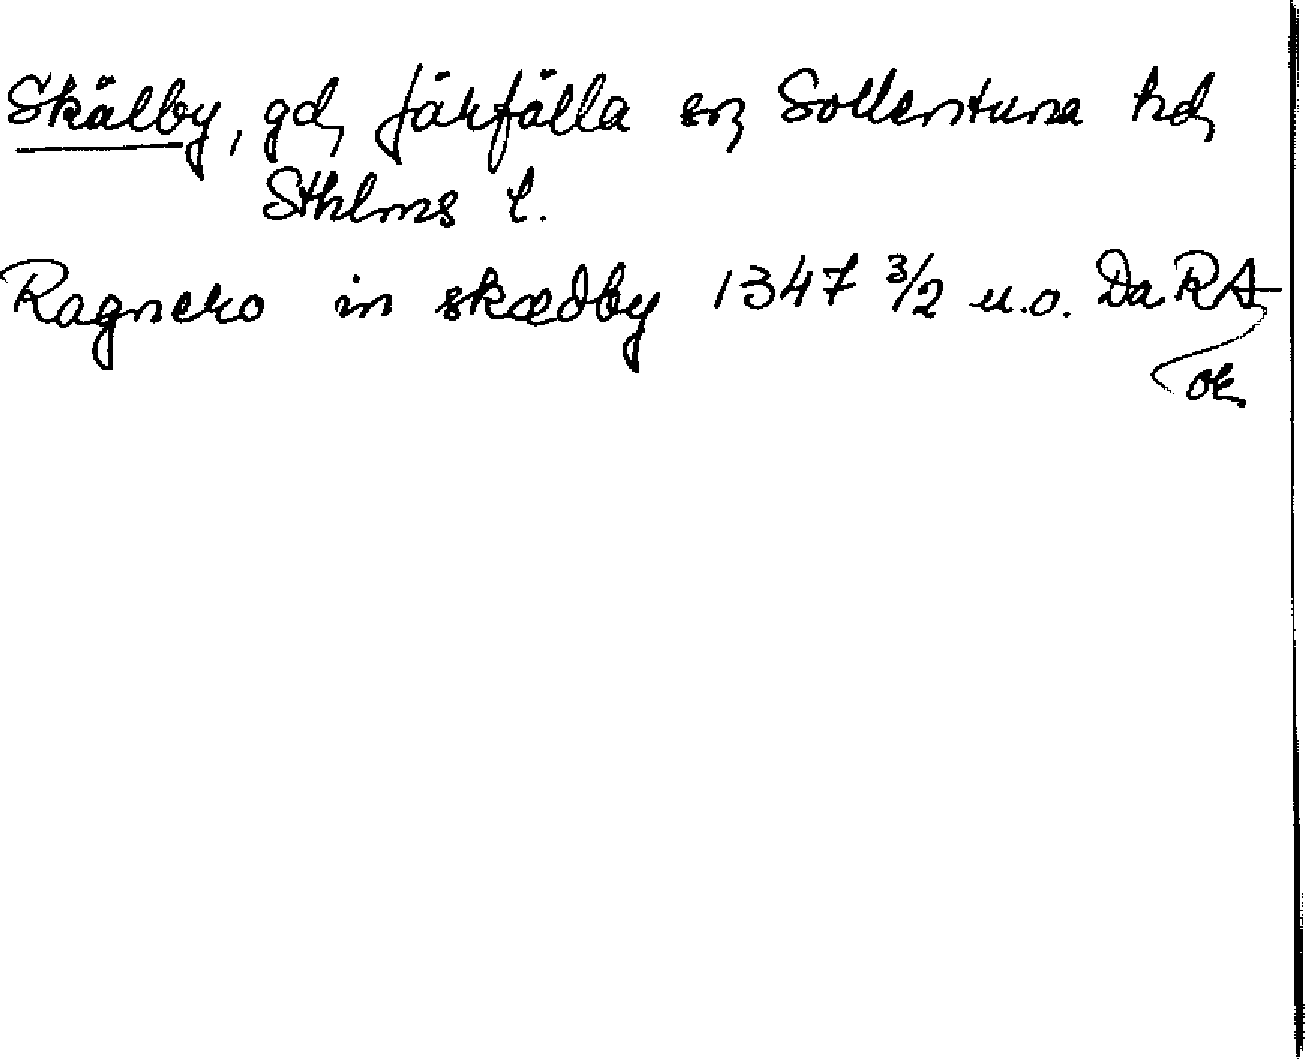 Skälby, gd, Järfälla sn, Sollentuna hd,
Sthlms l.
Ragnero in skædby 1347 3/2 u.o. Da RA
ok.